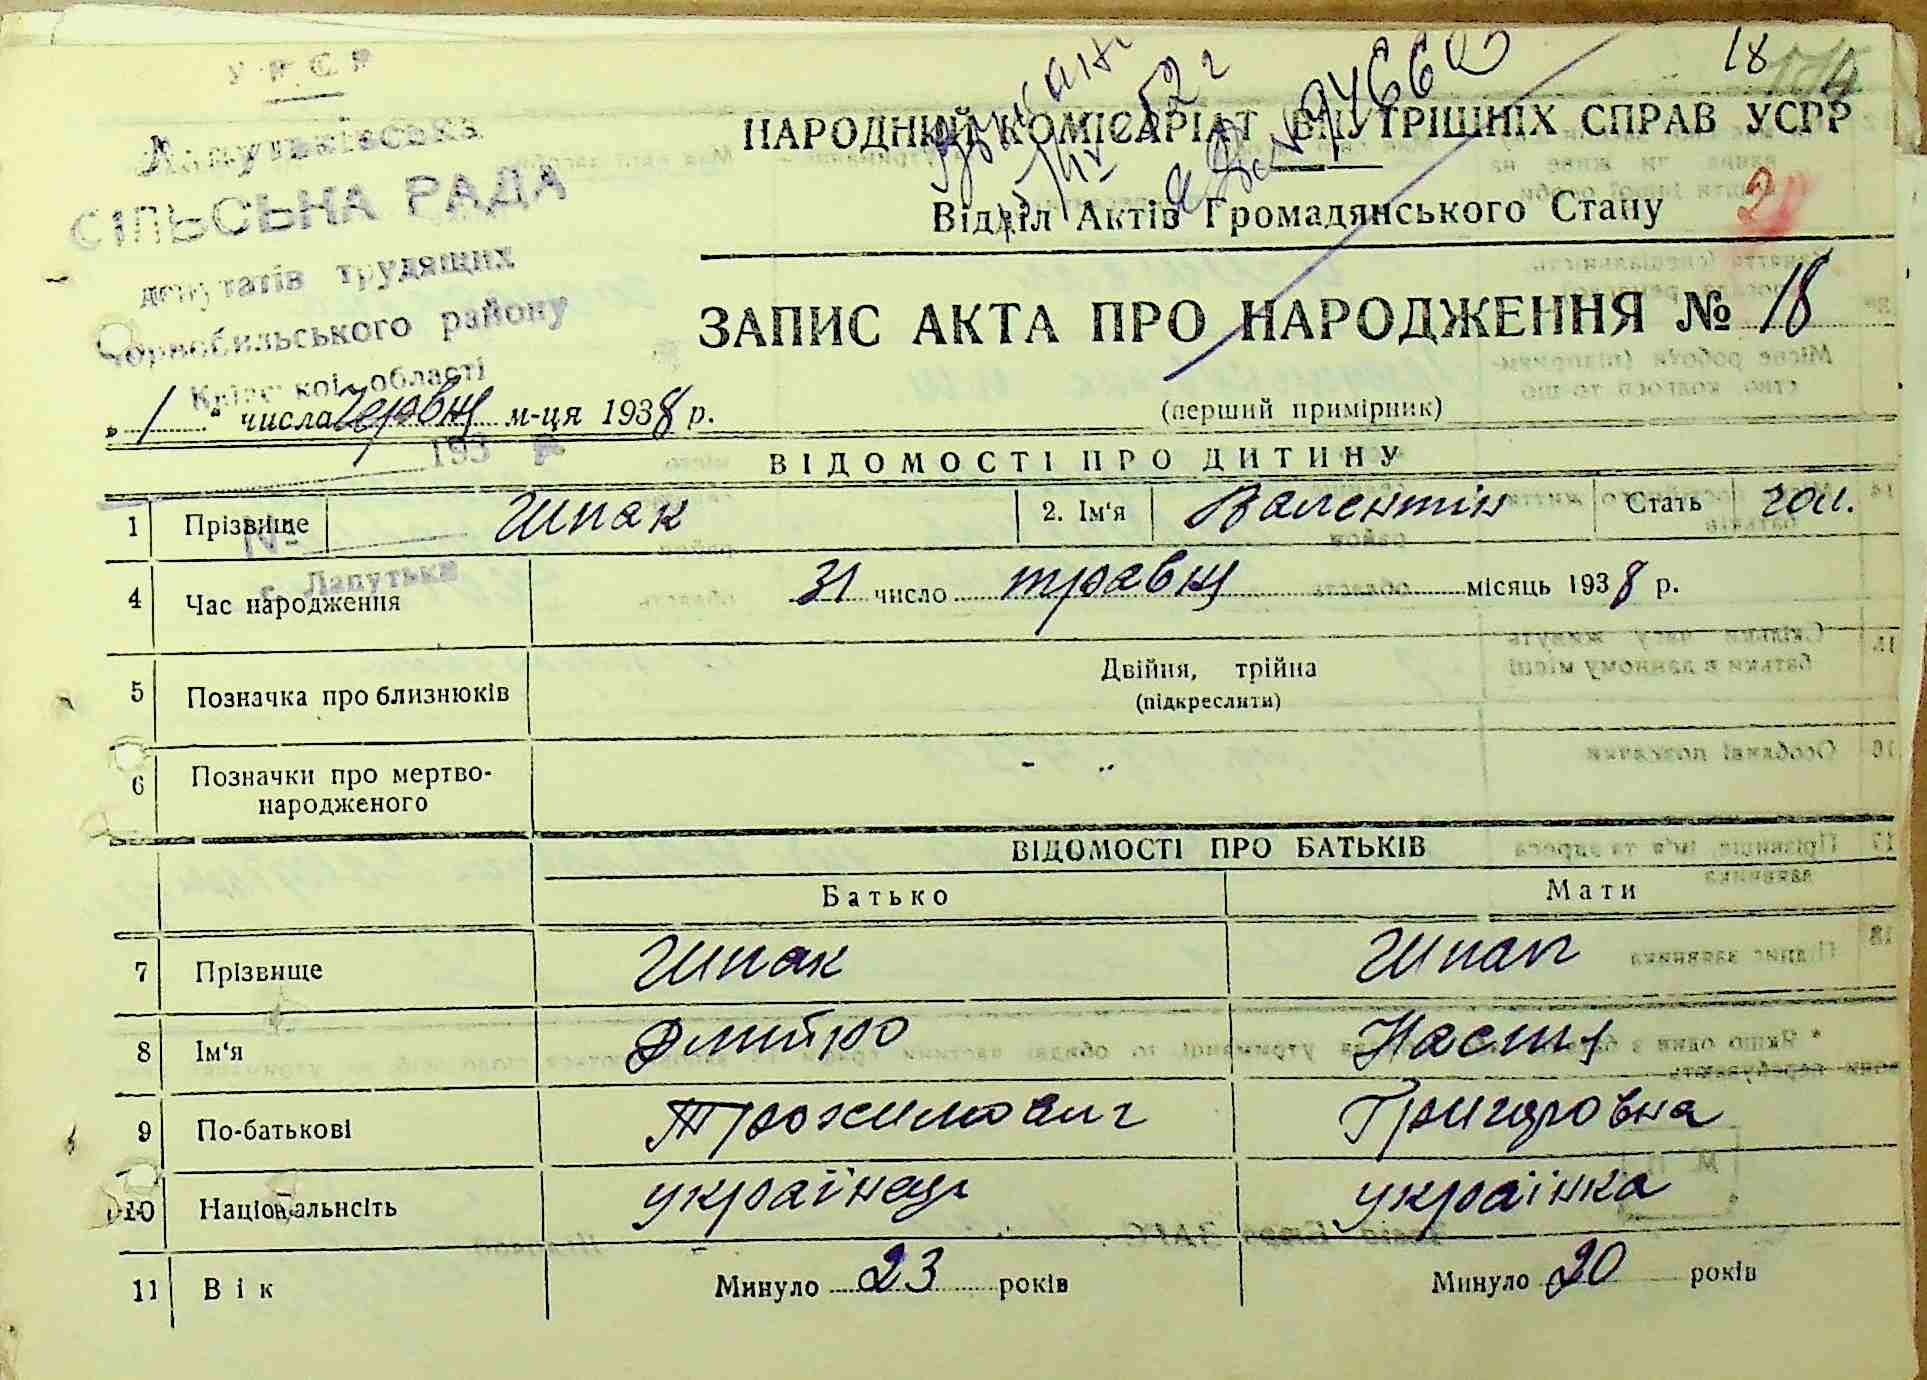 УРСР
СІЛЬСЬКА РАДА
депутатів трудящих
Чорнобильського району
Київської області
193 р
№
с. Лапутьки
18
52 г
НАРОДНИЙ КОМІСАРІАТ ВНУТРІШНІХ СПРАВ УСРР
Відділ Актів Громадянського Стану
ЗАПИС АКТА ПРО НАРОДЖЕННЯ № 18
„ 1 “ числа червня м-ця 1938 р.
(перший примірник)
ВІДОМОСТІ ПРО ДИТИНУ
1 Прізвище Шпак 2. Ім'я Валентін Стать чол.
4 Час народження 31 число травня місяць 1938 р.
5 Позначка про близнюків Двійня, трійна
(підкреслити)
6 Позначки про мертво-
народженого - "
ВІДОМОСТІ ПРО БАТЬКІВ
Батько Мати
7 Прізвище Шпак Шпак
8 Ім'я Дмитро Настя
9 По-батькові Трохимович Григоровна
10 Національнсіть українець українка
11 Вік Минуло 23 років Минуло 20 років